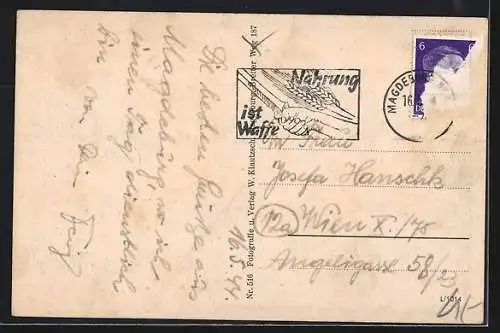 Die besten Grüße aus
Magdeburg, wo ich
einen Tag dienstlich
bin von Dein
16.5.44.
Nr. 516 Fotografie u. Verlag W. Klautzsch, Weg 187
Nahrung
ist
Waffe
6
MAGDEBURG
16.
Frau
Josefa Hanschk
(12a) Wien X./75
Angeligasse 58/
L/1014